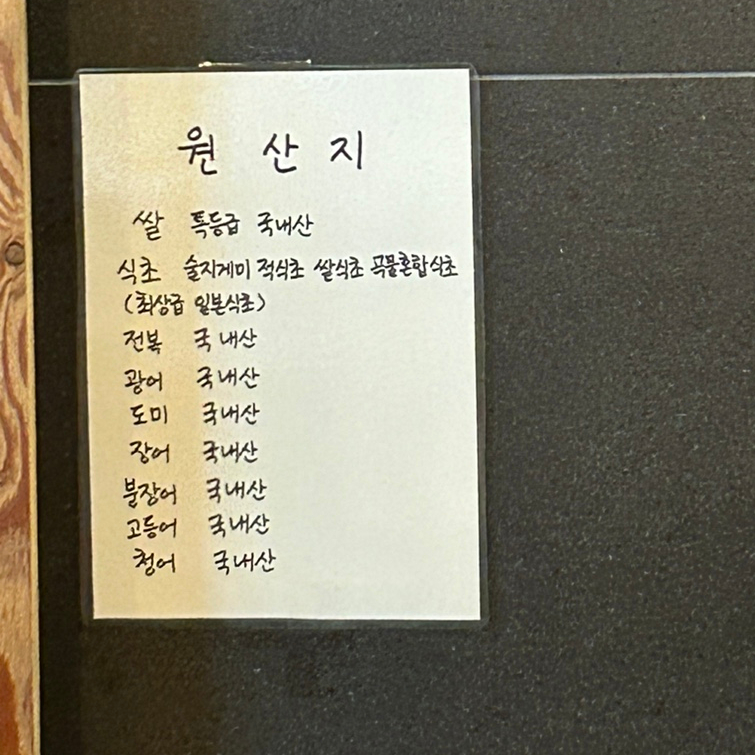 원 산 지
쌀 특등급 국내산
식초 술지게미 적식초 쌀식초 곡물혼합식초
(최상급 일본식초)
전복 국내산
광어 국내산
도미 국내산
장어 국내산
붕장어 국내산
고등어 국내산
청어 국내산